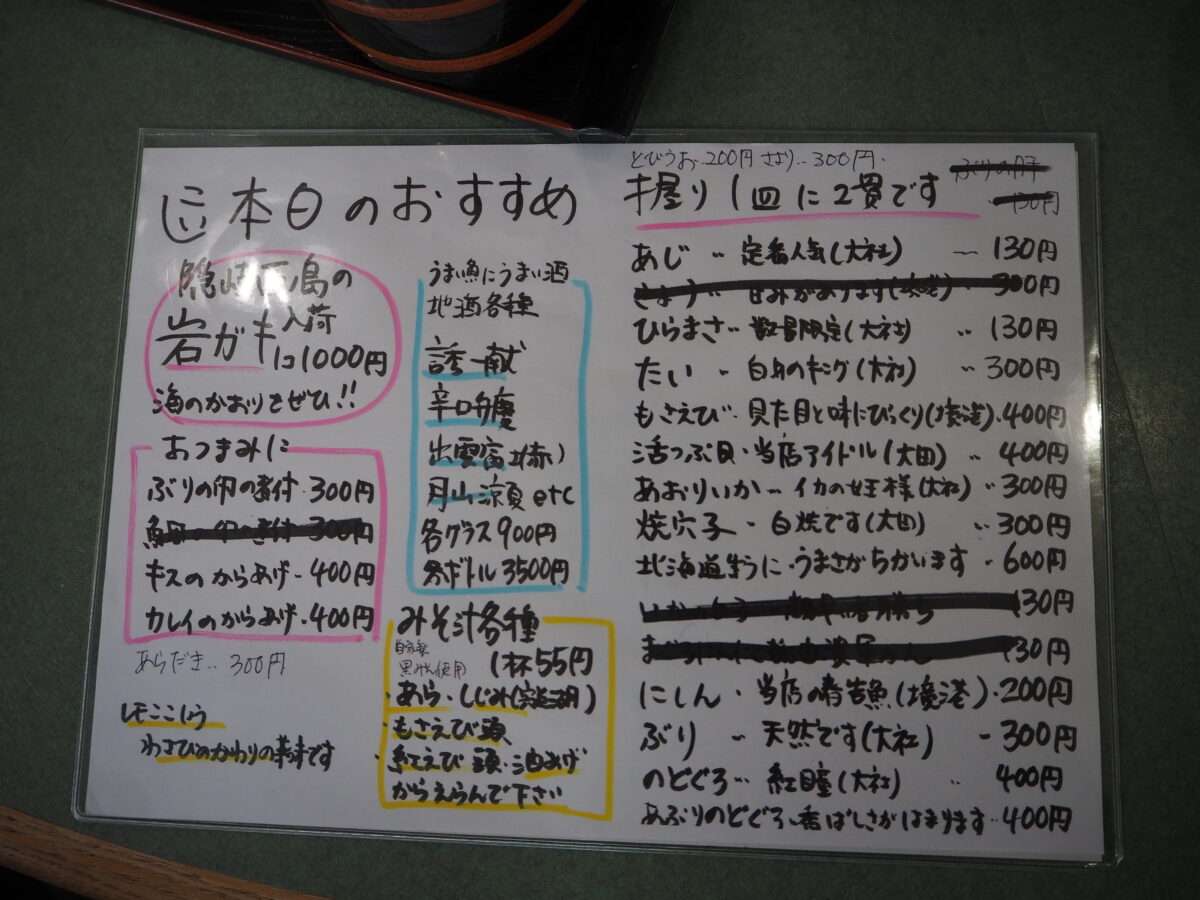 本日のおすすめ
隠岐西ノ島の
岩ガキ入荷
1コ1000円
海のかおりをぜひ!!
おつまみに
ぶりの卵の煮付・300円
キスのからあげ・400円
カレイのからあげ・400円
あらだき‥300円
レモンこしょう
わさびのかわりの薬味です
うまい魚にうまい酒
地酒各種
誘一献
辛口弁慶
出雲富士(赤)
月山 etc
各グラス900円
各ボトル3500円
みそ汁各種
自家製
黒みそ使用
1杯55円
・あら・しじみ(宍道湖)
・もさえび頭
・紅えび頭・油あげ
からえらんで下さい
とびうお‥200円 さより‥300円
握り1皿に2貫です
あじ‥定番人気(大社)‥130円
ひらまさ‥数量限定(大社)‥130円
たい‥白身のキング(大社)‥300円
もさえび・見た目と味にびっくり(境港)・400円
活つぶ貝・当店アイドル(大田)‥400円
あおりいか‥イカの女王様(大社)‥300円
焼穴子・白焼です(大田)‥300円
北海道生うに・うまさがちがいます・600円
130円
130円
にしん・当店の春告魚(境港)・200円
ぶり‥天然です(大社)-300円
のどぐろ‥紅瞳(大社)‥400円
あぶりのどぐろ・香ばしさがはまります‥400円